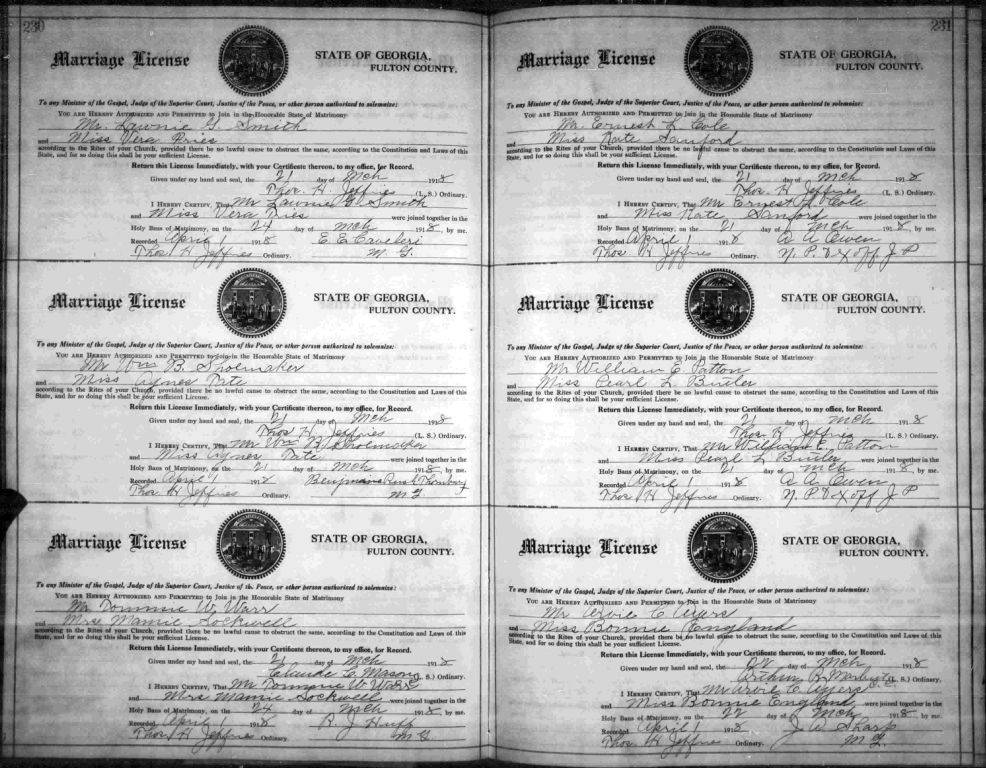 230
Marriage License
STATE OF GEORGIA,
FULTON COUNTY.
To any Minister of the Gospel, Judge of the Superior Court, Justice of the Peace, or other person authorized to solemnize:
YOU ARE HEREBY AUTHORIZED AND PERMITTED to Join in the Honorable State of Matrimony
Mr. Lawnie G. Smith
and Miss Vera Pries
according to the Rites of your Church, provided there be no lawful cause to obstruct the same, according to the Constitution and Laws of this
State, and for so doing this shall be your sufficient License.
Return this License Immediately, with your Certificate thereon, to my office, for Record.
Given under my hand and seal, the 21 day of Mch 1918
Thos. H Jeffries (L. S.) Ordinary.
I HEREBY CERTIFY, That Mr Lawnie G Smith
and Miss Vera Pries were joined together in the
Holy Bans of Matrimony, on the 24 day of Mch 1918, by me.
Recorded April 1 1918 E E
Thos H Jeffries Ordinary. M. G.
Marriage License
STATE OF GEORGIA,
FULTON COUNTY.
To any Minister of the Gospel, Judge of the Superior Court, Justice of the Peace, or other person authorized to solemnize:
YOU ARE HEREBY AUTHORIZED AND PERMITTED to Join in the Honorable State of Matrimony
Mr Wm B. Shoemaker
and Miss Agnes Tate
according to the Rites of your Church, provided there be no lawful cause to obstruct the same, according to the Constitution and Laws of this
State, and for so doing this shall be your sufficient License.
Return this License Immediately, with your Certificate thereon, to my office, for Record.
Given under my hand and seal, the 21 day of Mch 1918
Thos H Jeffries (L. S.) Ordinary.
I HEREBY CERTIFY, That Mr Wm B Shoemaker
and Miss Agnes Tate were joined together in the
Holy Bans of Matrimony, on the 21 day of Mch 1918, by me.
Recorded April 1 1918 Rush
Thos H Jeffries Ordinary. M G
Marriage License
STATE OF GEORGIA,
FULTON COUNTY.
To any Minister of the Gospel, Judge of the Superior Court, Justice of the Peace, or other person authorized to solemnize:
YOU ARE HEREBY AUTHORIZED AND PERMITTED to Join in the Honorable State of Matrimony
Mr Tommie W. Warr
and Mrs Mamie Sockwell
according to the Rites of your Church, provided there be no lawful cause to obstruct the same, according to the Constitution and Laws of this
State, and for so doing this shall be your sufficient License.
Return this License Immediately, with your Certificate thereon, to my office, for Record.
Given under my hand and seal, the 21 day of Mch 1918
Claude C Mason S.) Ordinary.
I HEREBY CERTIFY, That Mr Tommie W Warr
and Mrs Mamie Sockwell were joined together in the
Holy Bans of Matrimony, on the 24 day of Mch 1918, by me.
Recorded April 1 1918 R J Huff
Thos H Jeffries Ordinary. M G
231
Marriage License
STATE OF GEORGIA,
FULTON COUNTY.
To any Minister of the Gospel, Judge of the Superior Court, Justice of the Peace, or other person authorized to solemnize:
YOU ARE HEREBY AUTHORIZED AND PERMITTED to Join in the Honorable State of Matrimony
Mr. Ernest L Cole
and Miss Kate Sanford
according to the Rites of your Church, provided there be no lawful cause to obstruct the same, according to the Constitution and Laws of this
State, and for so doing this shall be your sufficient License.
Return this License Immediately, with your Certificate thereon, to my office, for Record.
Given under my hand and seal, the 21 day of Mch 1918
Thos. H Jeffries (L. S.) Ordinary.
I HEREBY CERTIFY, That Mr Ernest L Cole
and Miss Kate Sanford were joined together in the
Holy Bans of Matrimony, on the 21 day of Mch 1918, by me.
Recorded April 1 1918 A A Owen
Thos. H Jeffries Ordinary. N. P. & Ex off J P
Marriage License
STATE OF GEORGIA,
FULTON COUNTY.
To any Minister of the Gospel, Judge of the Superior Court, Justice of the Peace, or other person authorized to solemnize:
YOU ARE HEREBY AUTHORIZED AND PERMITTED to Join in the Honorable State of Matrimony
Mr William E. Patton
and Miss Pearl L Butler
according to the Rites of your Church, provided there be no lawful cause to obstruct the same, according to the Constitution and Laws of this
State, and for so doing this shall be your sufficient License.
Return this License Immediately, with your Certificate thereon, to my office, for Record.
Given under my hand and seal, the 21 day of Mch 1918
Thos. H Jeffries (L. S.) Ordinary.
I HEREBY CERTIFY, That Mr William E. Patton
and Miss Pearl L Butler were joined together in the
Holy Bans of Matrimony, on the 21 day of Mch 1918, by me.
Recorded April 1 1918 A A Owen
Thos H Jeffries Ordinary. N. P. & Ex off J P
Marriage License
STATE OF GEORGIA,
FULTON COUNTY.
To any Minister of the Gospel, Judge of the Superior Court, Justice of the Peace, or other person authorized to solemnize:
YOU ARE HEREBY AUTHORIZED AND PERMITTED to Join in the Honorable State of Matrimony
Mr. Arvie C Ayers
and Miss Bonnie England
according to the Rites of your Church, provided there be no lawful cause to obstruct the same, according to the Constitution and Laws of this
State, and for so doing this shall be your sufficient License.
Return this License Immediately, with your Certificate thereon, to my office, for Record.
Given under my hand and seal, the 22 day of Mch 1918
Arthur R Marbut
I HEREBY CERTIFY, That Mr Arvie C. Ayers
and Miss Bonnie England, were joined together in the
Holy Bans of Matrimony, on the 22 day of Mch 1918, by me.
Recorded April 1 1918 J A Sharp
Thos. H Jeffries Ordinary. M G.